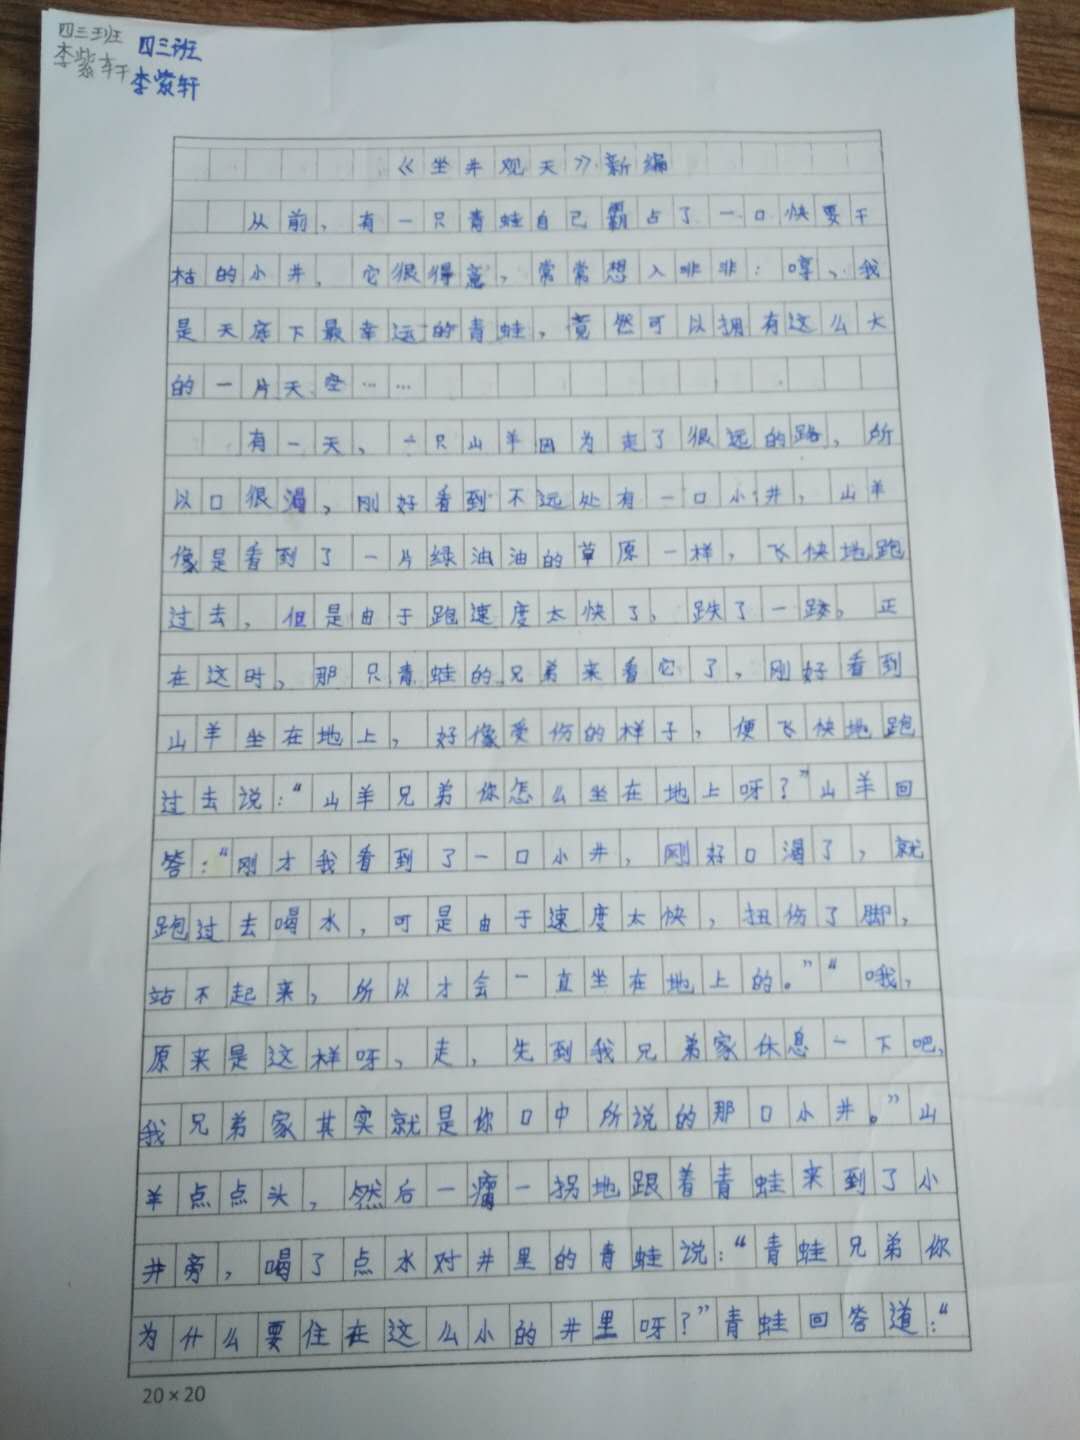 四三班 四三班
李紫轩 李紫轩
《坐井观天》新编
从前，有一只青蛙自己霸占了一口快要干
枯的小井，它很得意，常常想入啡啡：哼、我
是天底下最幸运的青蛙，竟然可以拥有这么大
的一片天空……
有一天、一只山羊因为走了很远的路，所
以口很渴，刚好看到不远处有一口小井，山羊
像是看到了一片绿油油的草原一样，飞快地跑
过去，但是由于跑速度太快了，跌了一跤。正
在这时、那只青蛙的兄弟来看它了，刚好看到
山羊坐在地上，好像受伤的样子，便飞快地跑
过去说：“山羊兄弟你怎么坐在地上呀？”山羊回
答：“刚才我看到了一口小井，刚好口渴了，就
跑过去喝水，可是由于速度太快，扭伤了脚，
站不起来，所以才会一直坐在地上的。”“哦，
原来是这样呀、走，先到我兄弟家休息一下吧，
我兄弟家其实就是你口中所说的那口小井。”山
羊点点头，然后一瘸一拐地跟着青蛙来到了小
井旁，喝了点水对井里的青蛙说：“青蛙兄弟你
为什么要住在这么小的井里呀？”青蛙回答道：“
20×20